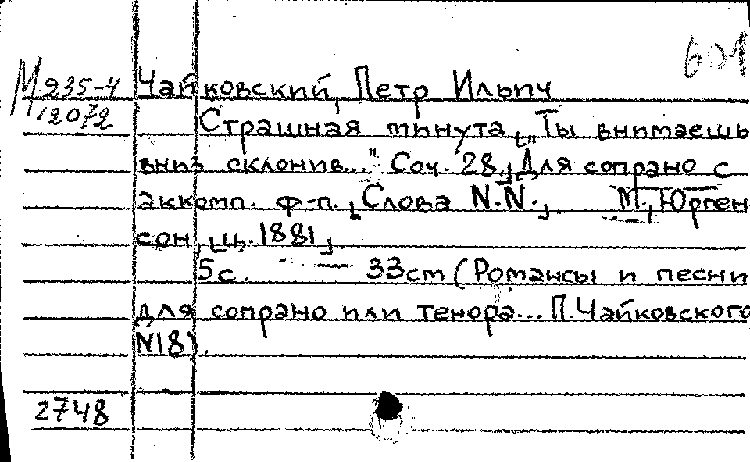 601
М 235-4 Чайковский, Петр Ильич
12072 Страшная минута „Ты внимаешь
вниз склонив..." Соч. 28. Для сопрано с
аккомп. ф-п. Слова N.N. М, Юрген
сон, ц. 1881
5с. 33см (Романсы и песни
для сопрано или тенора... П. Чайковского
N18).
2748